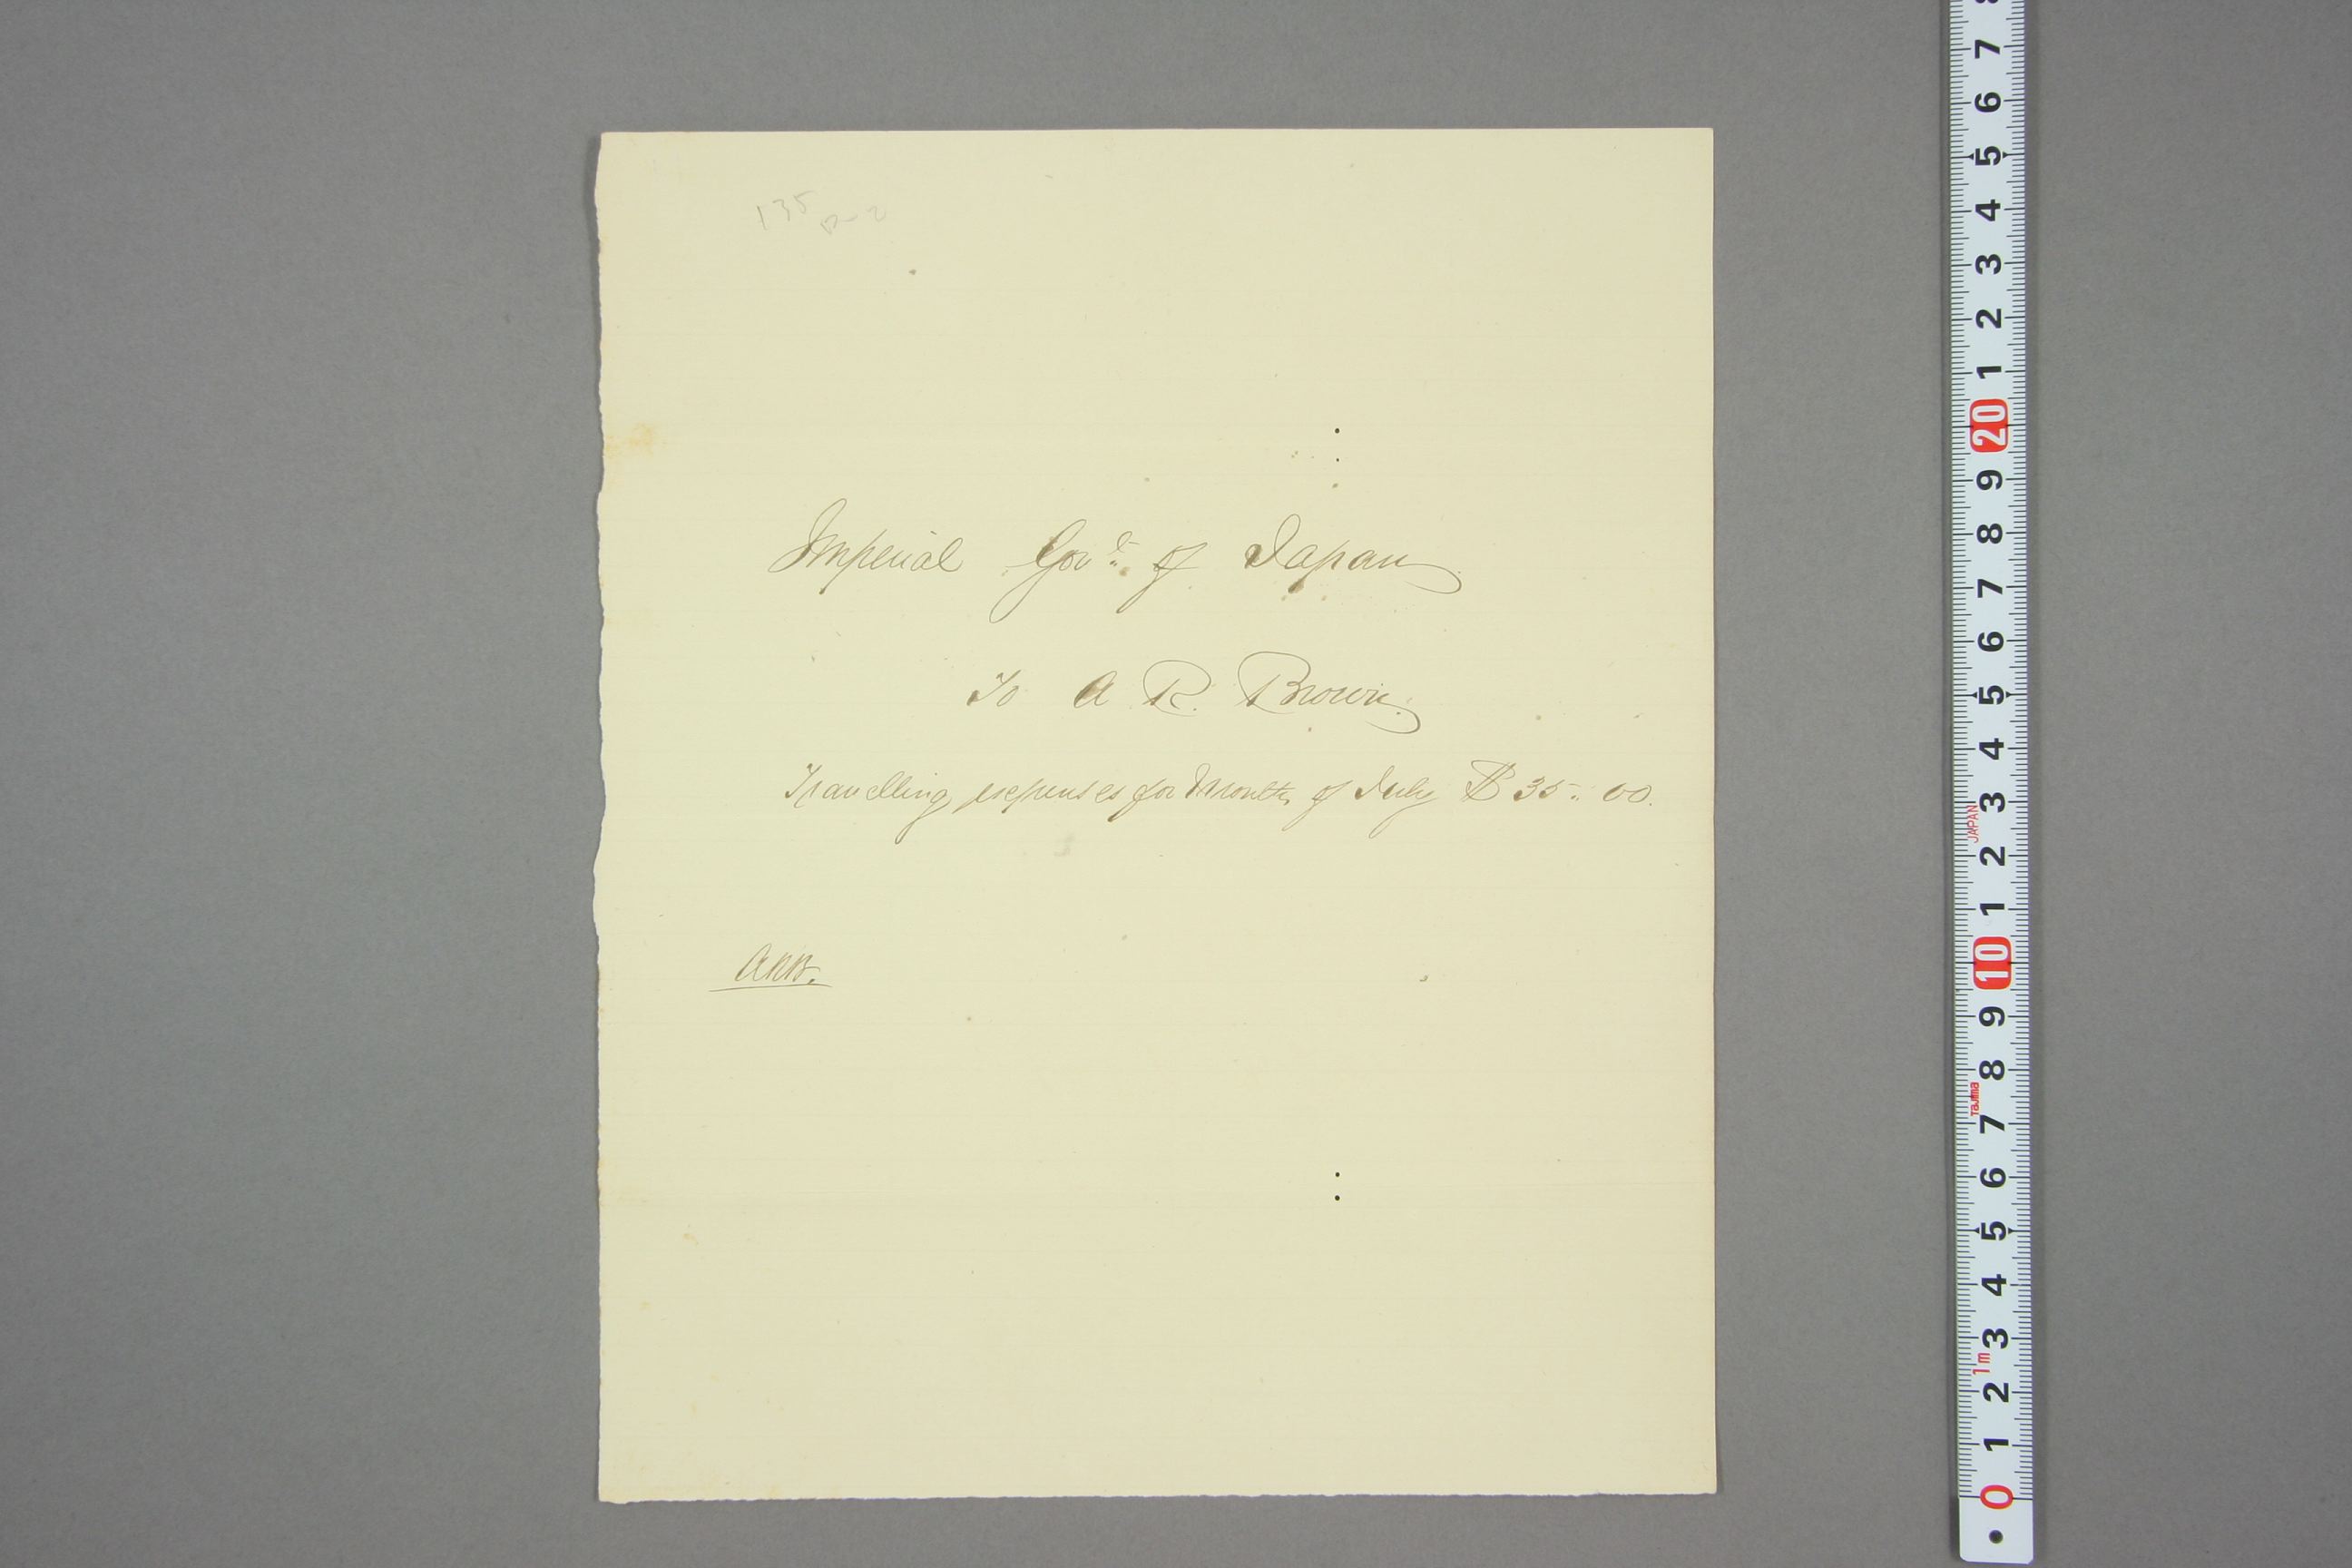 135
p-2
Imperial Govt. of Japan
To A R. Brown.
Travelling expenses for Month of July $ 35.. 00.
ARB.
8 7 6 5 4 3 2 1 20 9 8 7 6 5 4 3 2 1 10 9 8 7 6 5 4 3 2 1 0
JAPAN
Tajima
1m